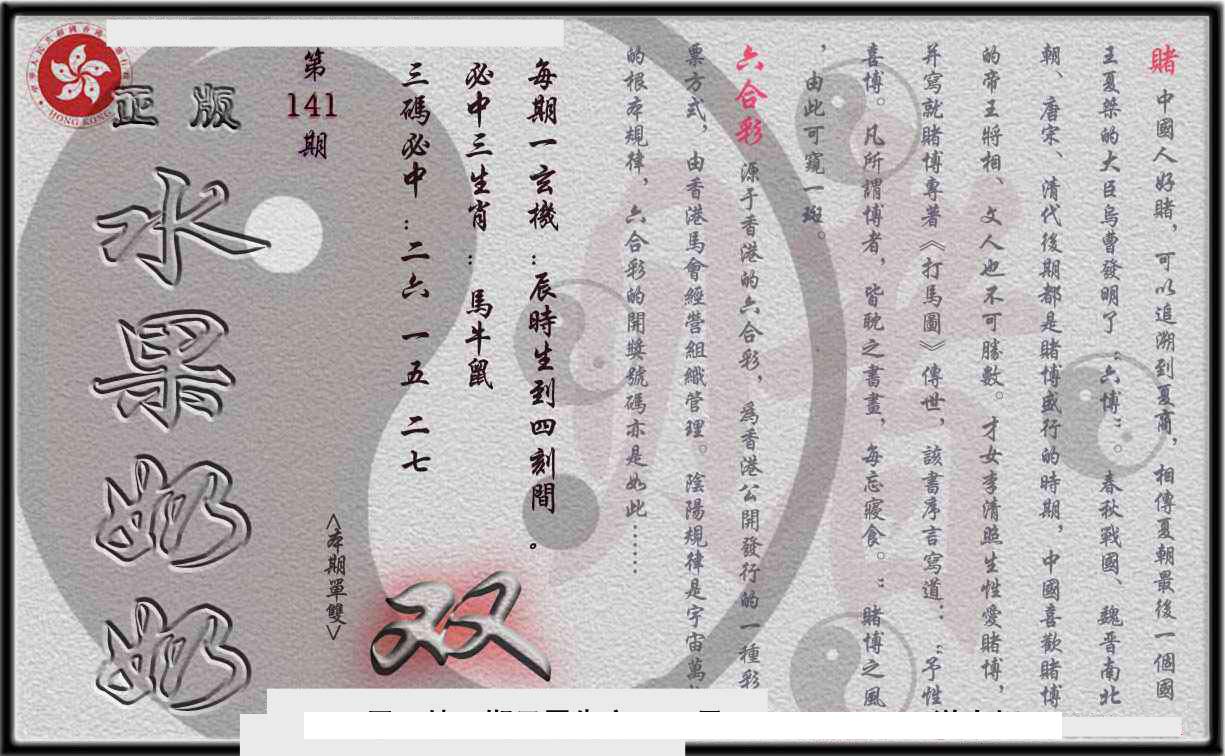 賭 中國人好賭，可以追溯到夏商，相傳夏朝最後一個國
王夏桀的大臣烏曹發明了“六博”。春秋戰國、魏晉南北
朝、唐宋、清代後期都是賭博盛行的時期，中國喜歡賭博
的帝王將相、文人也不可勝數。才女李清照生性愛賭博，
并寫就賭博專著《打馬圖》傳世，該書序言寫道：“予性
喜博。凡所謂博者，皆耽之書畫，每忘寢食。”賭博之風
，由此可窺一斑。
六合彩 源于香港的六合彩，為香港公開發行的一種彩
票方式，由香港馬會經營組織管理。陰陽規律是宇宙萬
的根本規律，六合彩的開獎號碼亦是如此……
每期一玄機：辰時生到四刻間。
必中三生肖：馬牛鼠
三碼必中：二六 一五 二七
<本期單雙>
双
第141期
正版
水果奶奶
HONG KONG